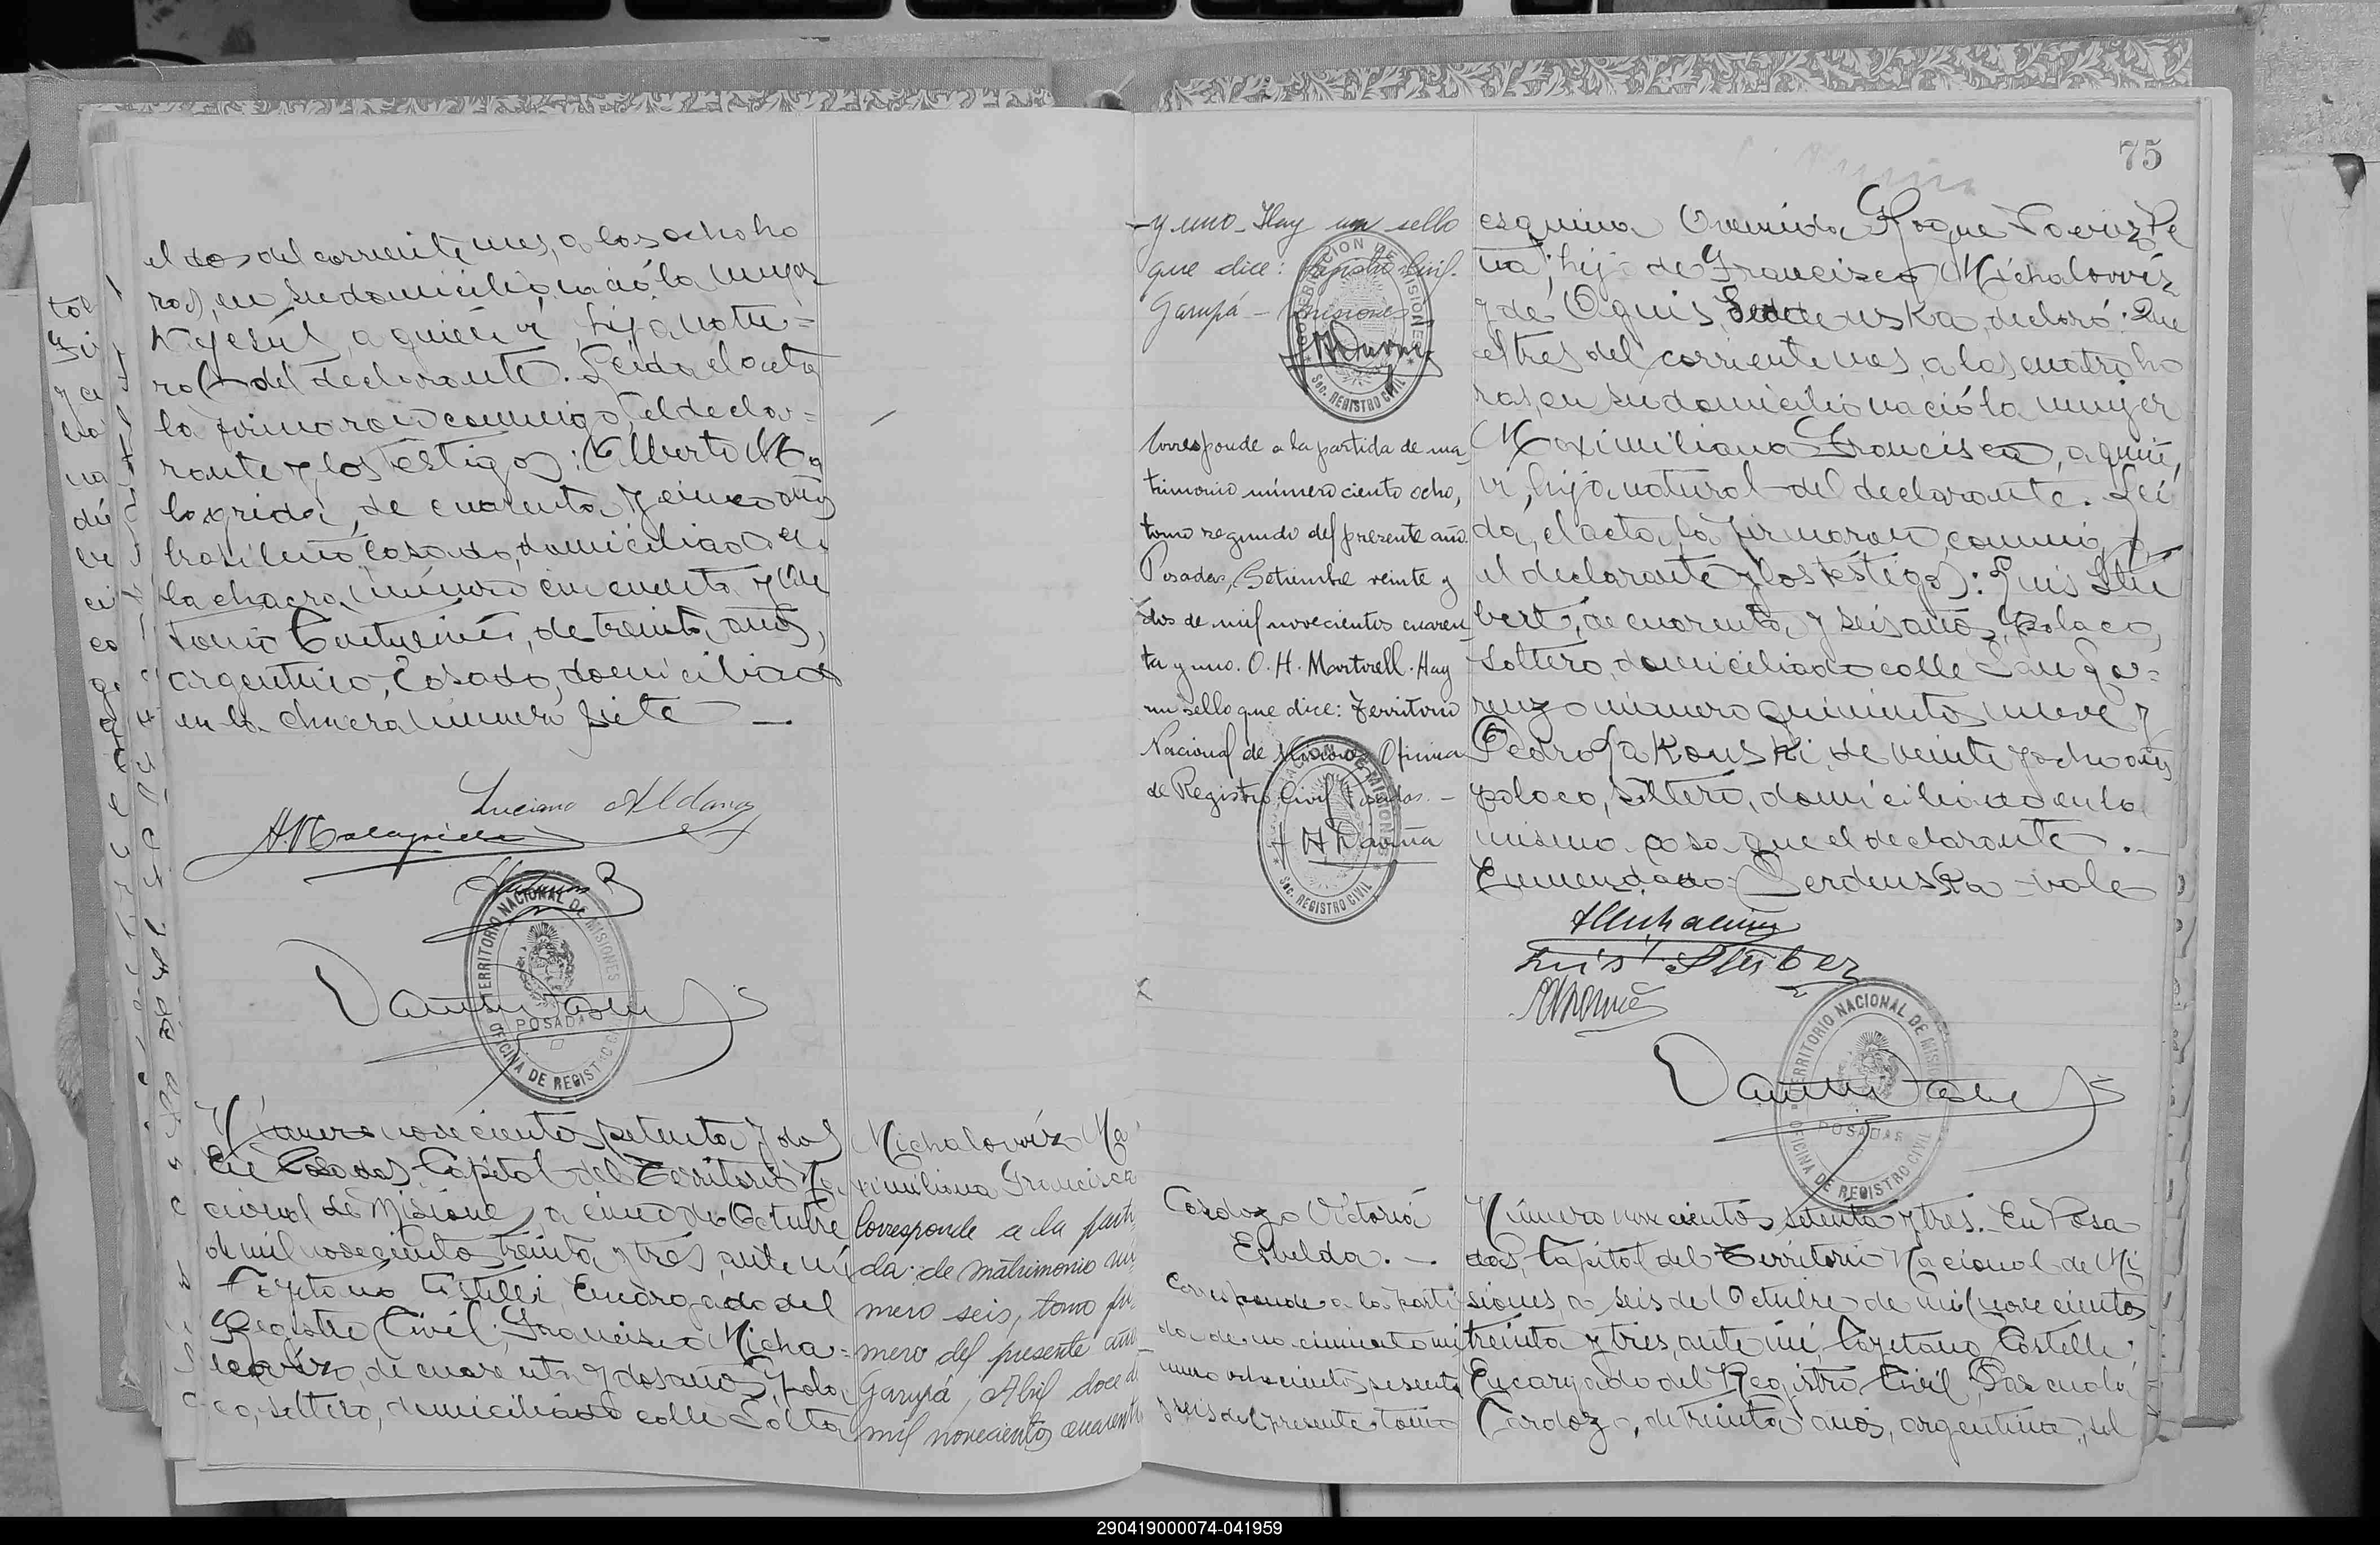 el dos del corriente mes, a las ocho ho
ras, en su domicilio nació la mujer
a quien vi, hija natu=
ral del declarante. Leída el acta
la firmaron conmigo, el decla=
rante y los testigos: Alberto Ma
lagrida, de cuarenta y cinco años
brasileño, casado, domiciliado en
la chacra número cincuenta y An
tonio de treinta años,
argentino, casado, domiciliado
en la chacra número siete —
Luciano Aldana
A. Malagrida
TERRITORIO NACIONAL DE MISIONES
POSADAS
OFICINA DE REGISTRO CIVIL
Número novecientos setenta y dos
En Posadas, Capital del Territorio Na
cional de Misiones, a cinco de Octubre
de mil novecientos treinta y tres, ante mí
Cayetano Castelli, Encargado del
Registro Civil, Francisco Micha=
lowiz, de cuarenta y dos años, pola
co, soltero, domiciliado calle Salta
Michalowiz Ma
ximiliana Francisca
Corresponde a la parti
da de matrimonio nú
mero seis, tomo pri
mero del presente año
Garupá, Abril doce de
mil novecientos cuarenta
75
y uno. Hay un sello
que dice: Registro Civil.
Garupá - Misiones
GOBERNACION DE MISIONES
Sec. REGISTRO CIVIL
Corresponde a la partida de ma
trimonio número ciento ocho,
tomo segundo del presente año.
Posadas, Setiembre veinte y
dos de mil novecientos cuaren
ta y uno. O. H. Martorell. Hay
un sello que dice: Territorio
Nacional de Misiones Oficina
de Registro Civil Posadas. —
GOBERNACION DE MISIONES
Sec. REGISTRO CIVIL
esquina Avenida Roque Saenz Pe
ña, hijo de Francisco Michalowiz
y de declaró: Que
el tres del corriente mes, a las cuatro ho
ras, en su domicilio nació la mujer
Maximiliana Francisca, a quien
vi, hija natural del declarante. Leí
da, el acta, la firmaron conmigo
el declarante y los testigos: Luis Stu
bert, de cuarenta y seis años, polaco,
soltero, domiciliado calle San Lo=
renzo número quinientos nueve y
Pedro de veinte y ocho años
polaco, soltero, domiciliado en la
misma casa que el declarante. —
Enmendado: Serdenska - vale
Luis Stuber
TERRITORIO NACIONAL DE MISIONES
POSADAS
OFICINA DE REGISTRO CIVIL
Cardozo Victoria
Eselda. —
Corresponde a la parti
da de nacimiento nú
mero ochocientos sesenta
y seis del presente tomo
Número novecientos setenta y tres. En Posa
das, Capital del Territorio Nacional de Mi
siones, a seis de Octubre de mil novecientos
treinta y tres, ante mí, Cayetano Castelli,
Encargado del Registro Civil, Pascuala
Cardozo, de treinta años, argentina, sol
290419000074-041959